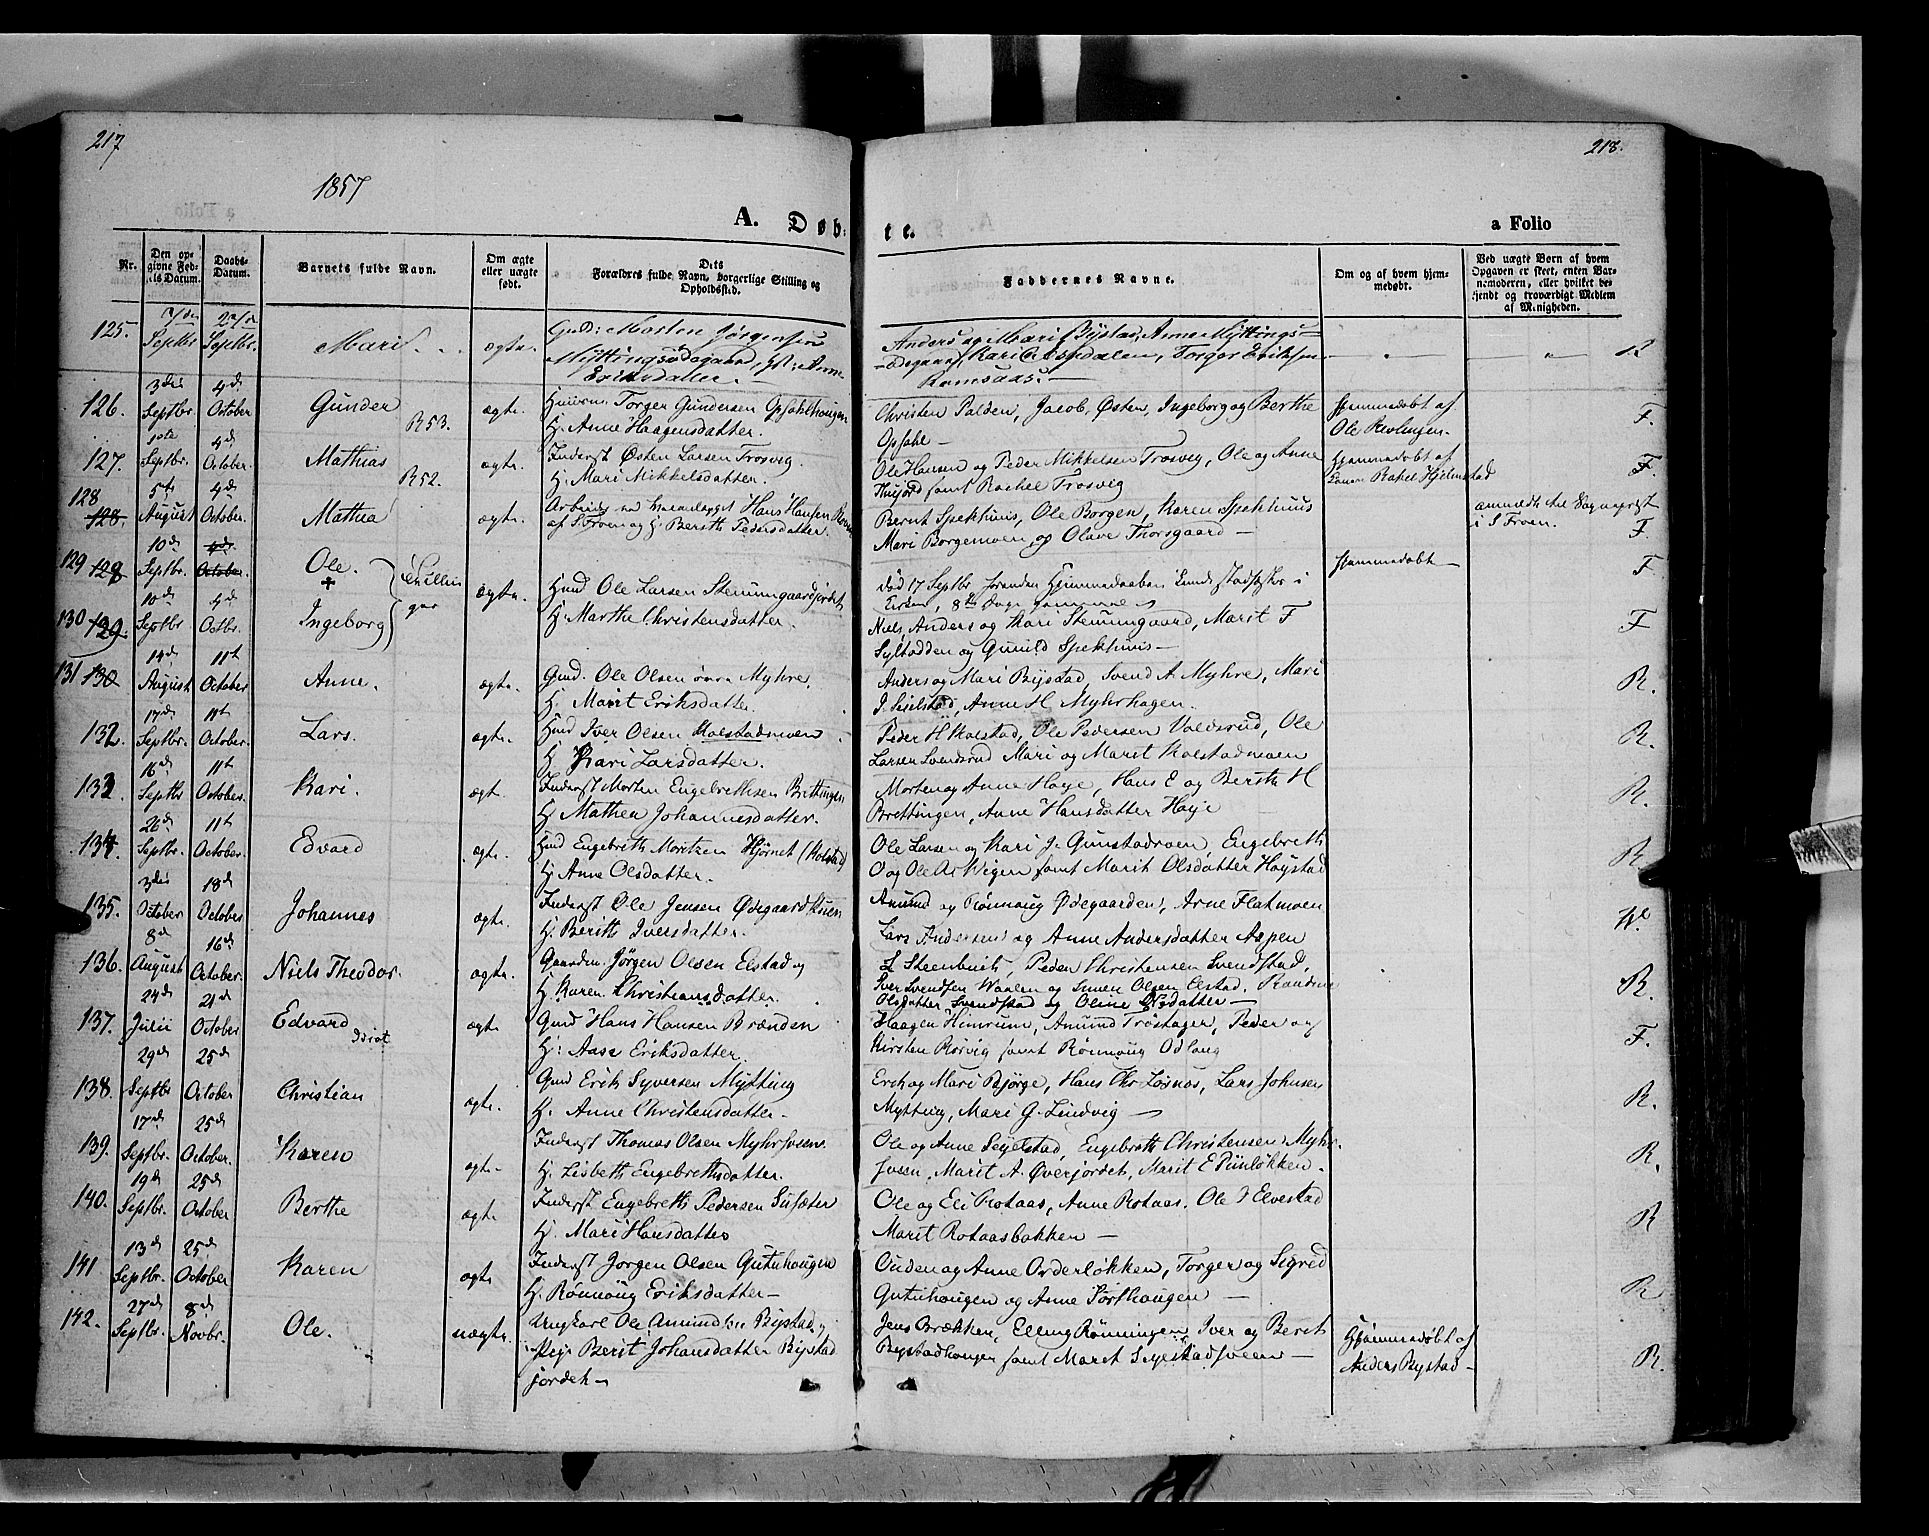 217
218.
1857
A. Døb-
te.
a Folio
Nr.
Den opgivne Fødsels Datum.
Daabs-Datum.
Barnets fulde Navn.
Om ægte eller uægte født.
Dets Forældres fulde Navn, borgerlige Stilling og Opholdssted.
Faddernes Navne.
Om og af hvem hjemmedøbt.
Ved uægte Børn af hvem Opgaven er skeet, enten Barnemoderen, eller hvilket bekjendt og troværdigt Medlem af Menigheden.
125. Septbr. Septbr. Mari ægte. Gmd: Morten Jørgensen
Anders og Mari Bystad, Anne Myttings-
Eriksdatter. —
ødegaard, Kari Aspdalen, Torger Eriksen
R
126. 3die Septbr. 4de October Gunder R53. ægte. Torger Gundersen Opsahlhougen
H. Anne Haagensdatter.
Christen Palden, Jacob, Østen, Ingeborg og Berthe
Opsahl —
Hjemmedøbt af
Ole Revlingen.
F.
127. 10de Septbr. 4de October. Mathias R52. ægte. Inderst Østen Larsen Trosvig.
H. Mari Mikkelsdatter.
Ole Hansen og Peder Mikkelsen Trosvig, Ole og Anne
samt Rachel Trosvig
Hjemmedøbt af
Rakel Hjelmstad
F
128 128. 5te August 4de October. Mathea ægte. Hans Hansen
og H. Berith Pedersdatter.
Bernt Spekhuus, Ole Borgen, Karen Spekhuus
Mari Borgemoen, og Olave Thorsgaard —
anmeldt til Sognepræst
i S. Froen.
F.
129 128 10de Septbr. 4de October. Ole. + Tvillinger ægte. Hmd Ole Larsen Steinumgaardjordet
H. Marthe Christensdatter.
død 17 Septbr
Hjemmedøbt
F
130 129. 10de Septbr. 4de Octbr. Ingeborg
Niels, Anders og Kari Steinumgaard, Marit F
Syltodden og Gunild Spekhuus —
F
131 130 14de August 11te October Anne. ægte. Gmd. Ole Olsen øvre Myhre.
H. Marit Eriksdatter.
Anders og Mari Bystad, Svend A Myhre, Mari
J. Seielstad, Anne H Myhrhagen.
R.
132. 17de Septbr. 11te October. Lars. ægte. Hmd Iver Olsen Kolstadmoen
H. Kari Larsdatter.
Peder H Kolstad, Ole Pedersen Valdsrud, Ole
Larsen Svendsrud Mari og Marit Kolstadmoen
R.
133. 16de Septbr 11te October. Kari. ægt. Inderst Morten Engebrethsen Brettingen
H. Mathea Johannesdatter.
Morten og Anne Høye, Hans E og Berith H
Brettingen, Anne Hansdatter Høye
R.
134. 26de Septbr. 11te October. Edvard ægt. Hmd Engebreth Moritzen Hjørnet (Kolstad)
H. Anne Olsdatter.
Ole Larsen og Kari J. Gunstadroen, Engebreth
O og Ole A. Wigen samt Marit Olsdatter Høystad
R
135. 3die October 18de October Johannes ægt. Inderst Ole Jensen Ødegaardstuen
H. Berith Iversdatter.
Amund og Rønnoug Ødegaarden, Arne Flatmoen
Lars Andersen og Anne Andersdatter Aspen
W.
136. 8de August 16de October. Niels Theodor. ægte. Gaardm. Jørgen Olsen Elstad og
H. Karen Christiansdatter.
L Steenbuch, Peder Christensen Svendstad,
Iver Svendsen Waalen og Simen Olsen Elstad, Randine
Olsdatter Svendstad og Oline Olsdatter —
R.
137. 24de Julii 21de October Edvard Idiot ægte Gmd Hans Hansen Brænden
H: Aase Eriksdatter.
Haagen Heinrum, Amund Trøstager, Peder og
Kirsten Rørvig samt Rønnoug Odlaug
F.
138. 29de Septbr 25de October Christian ægte. Gmd Erik Syversen Mytting
H. Anne Christensdatter.
Erik og Mari Bjørge, Hans Chr Losnas, Lars Johnsen
Mytting, Mari G. Lindvig —
R.
139. 17de Septbr. 25de October. Karen ægte Inderst Thomas Olsen Myhrsveen.
H. Lisbeth Engebrethsdatter.
Ole og Anne Seyelstad, Engebreth Christensen Myhr-
sveen, Marit A. Øverjordet, Marit E Piinløkken.
R.
140. 19de Septbr. 25de October Berthe ægte Inderst Engebreth Pedersen Sulsæter
H. Mari Hansdatter
Ole og Eli Rotaas, Anne Rotaas. Ole I Elvestad
Marit Rotaasbakken —
R
141 13de Septbr. 25de October Karen ægte Inderst Jørgen Olsen Gutuhougen
H. Rønnoug Eriksdatter —
Ouden og Anne Orderløkken, Torger og Sigred
Gutuhougen og Anne Sørthougen —
R
142. 27de Septbr. 8de Novbr. Ole. uægte. Ungkarl Ole Amundsen Bystad,
Pige Berit Johansdatter Bystad
jordet —
Jens Brækken, Elling Rønningen Iver og Berit
Bystadhougen samt Marit Seyelstadsveen —
Hjemmedøbt af
Anders Bystad —
R.